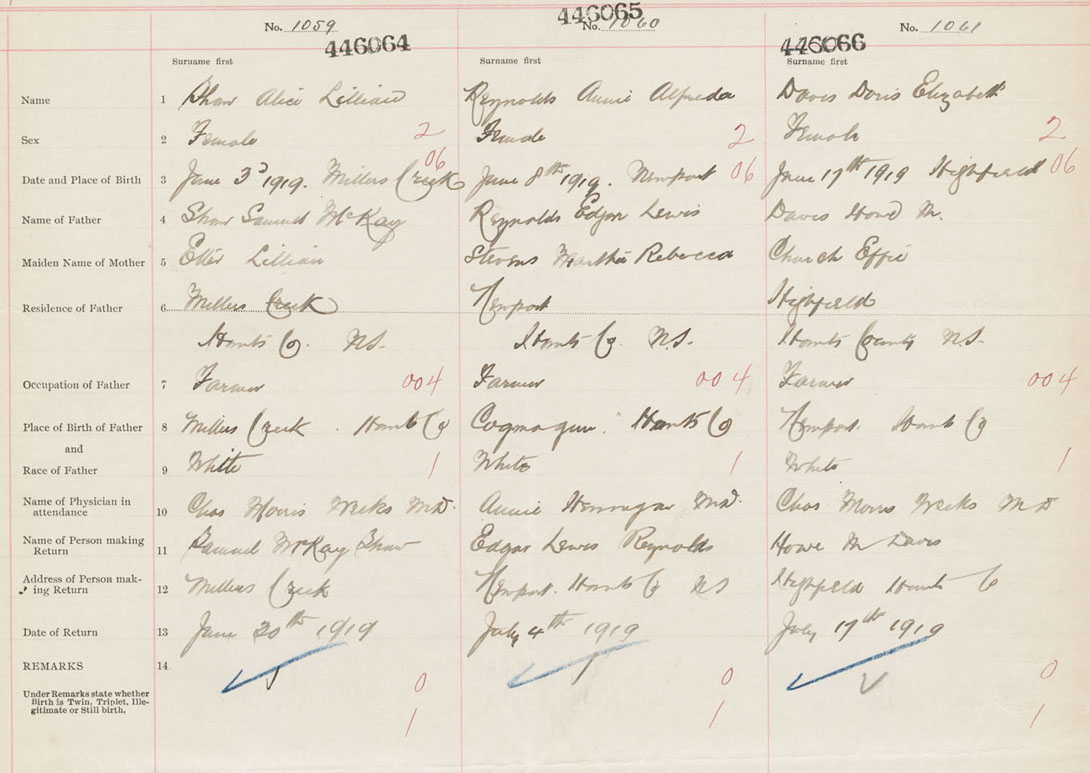 No. 1059 446064
446065 No. 1060
446066 No. 1061
Surname first Surname first Surname first
Name 1 Shaw Alice Lillian Reynolds Annie Alfreda Davis Doris Elizabeth
Sex 2 Female 2 Female 2 Female 2
Date and Place of Birth 3 June 3d 1919. Millers Creek 06 June 8th 1919. Newport 06 June 17th 1919 Highfield 06
Name of Father 4 Shaw Samuel McKay Reynolds Edgar Lewis Davis Howe M.
Maiden Name of Mother 5 Etter Lillian Stevens Martha Rebecca Church Effie
Residence of Father 6 Millers Creek Newport Highfield
Hants Co. NS. Hants Co. N.S. Hants County N.S.
Occupation of Father 7 Farmer 004 Farmer 004 Farmer 004
Place of Birth of Father 8 Millers Creek. Hants Co Cogmagun. Hants Co Newport. Hants Co
and
Race of Father 9 White 1 White 1 White 1
Name of Physician in
attendance 10 Chas Morris Weeks MD. Annie MD. Chas Morris Weeks MD
Name of Person making
Return 11 Samuel McKay Shaw Edgar Lewis Reynolds Howe M Davis
Address of Person mak-
ing Return 12 Millers Creek Newport. Hants Co NS Highfield Hants Co
Date of Return 13 June 30th 1919 July 4th 1919 July 17th 1919
REMARKS 14 0 0 0
Under Remarks state whether
Birth is Twin, Triplet, Ille-
gitimate or Still birth. 1 1 1